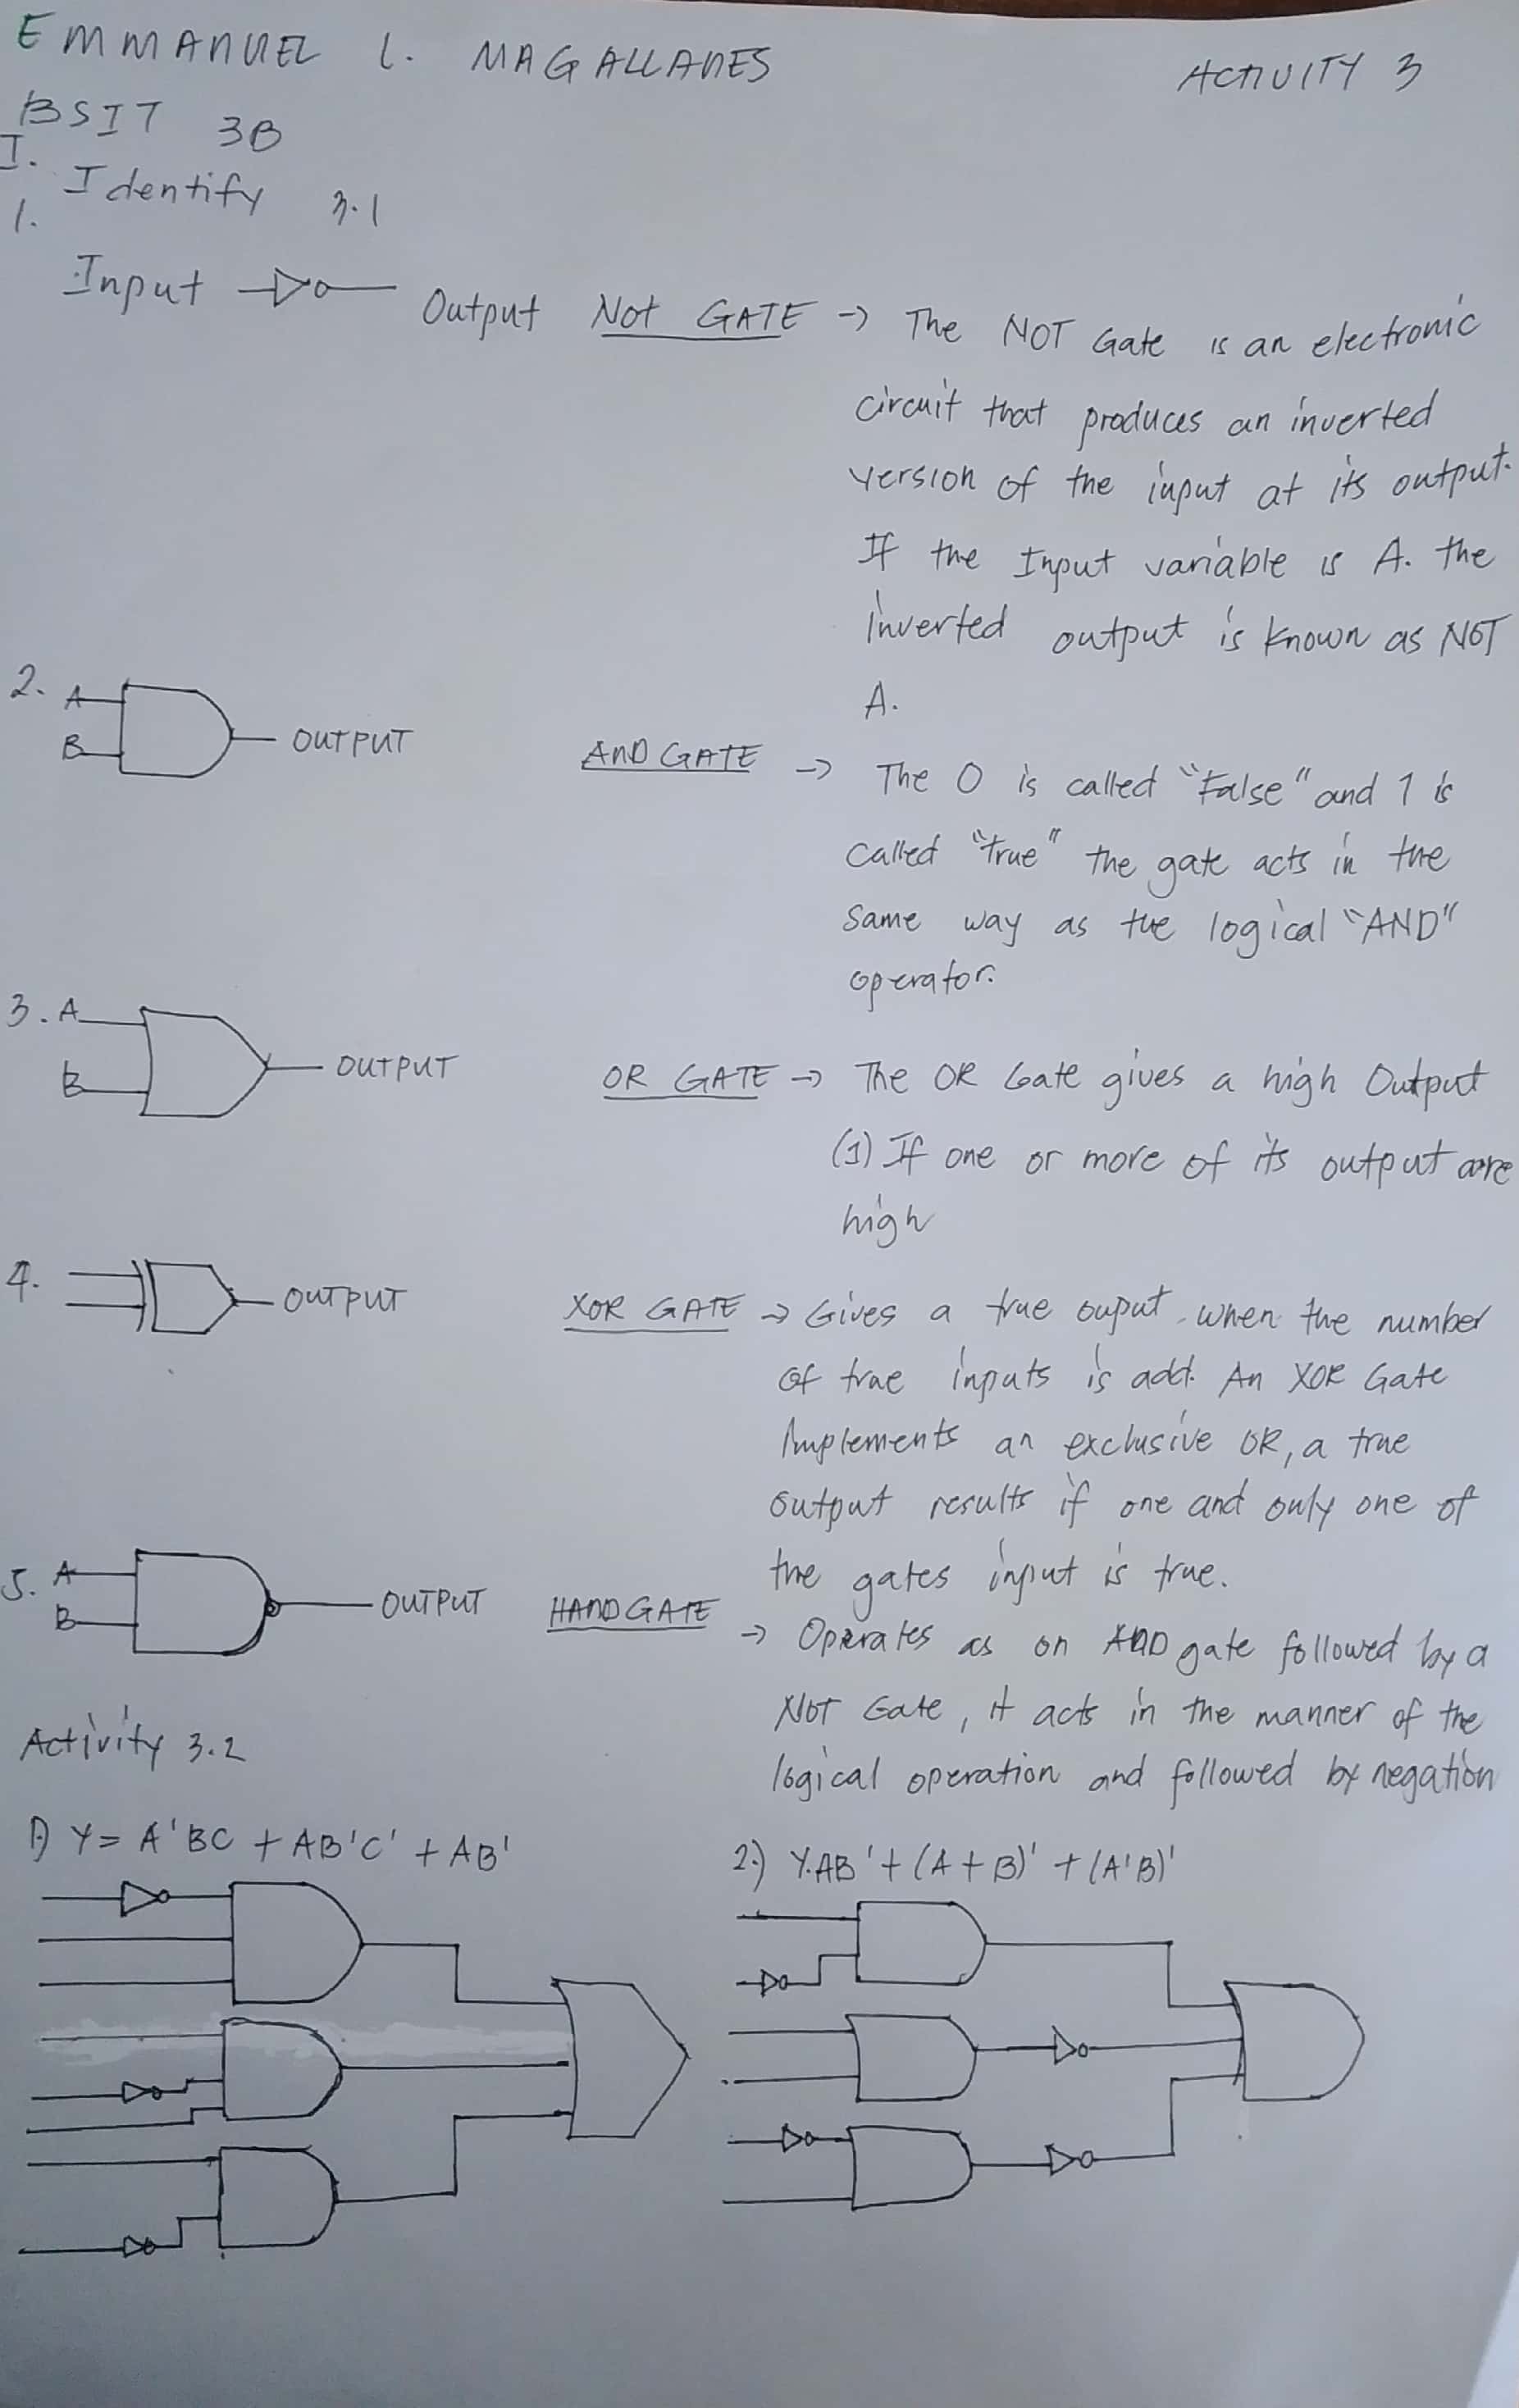 EMMANUEL L. MAGALLANES
ACTIVITY 3
BSIT 3B
I. Identify 3.1
1.
Input
Output
Not GATE → The NOT Gate is an electronic
circuit that produces an inverted
version of the input at its output.
If the Input variable is A. the
inverted output is known as NOT
A.
2. A
B
OUTPUT
AND GATE → The 0 is called "False" and 1 is
called "true" the gate acts in the
same way as the logical "AND"
operator.
3. A
B
OUTPUT
OR GATE → The OR Gate gives a high Output
(1) If one or more of its output are
high
4.
OUTPUT
XOR GATE → Gives a true ouput when the number
of true inputs is add. An XOR Gate
Implements an exclusive OR, a true
output results if one and only one of
the gates input is true.
5. A
B
OUTPUT
HAND GATE → Operates as on AND gate followed by a
NOT Gate, it acts in the manner of the
logical operation and followed by negation
Activity 3.2
1) Y = A'BC + AB'C' + AB'
2.) Y.AB' + (A + B)' + (A'B)'